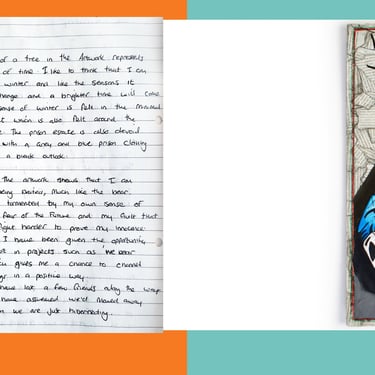 of a tree in the Artwork represents
of time I like to think that I am
winter and like the seasons it
change and a brighter time will come
sense of winter is felt in the
which is also felt around the
The prison estate is also devoid
with a grey and blue prison clothing
a bleak outlook.
The artwork shows that I can
being beaten, much like the bear.
tormented by my own sense of
fear of the future and my guilt that
fight harder to prove my innocence
I have been given the opportunity
in projects such as 'we bear
gives me a chance to channel
in a positive way
have lost a few friends along the way
have assumed we'd flowed away
we are just hibernating.